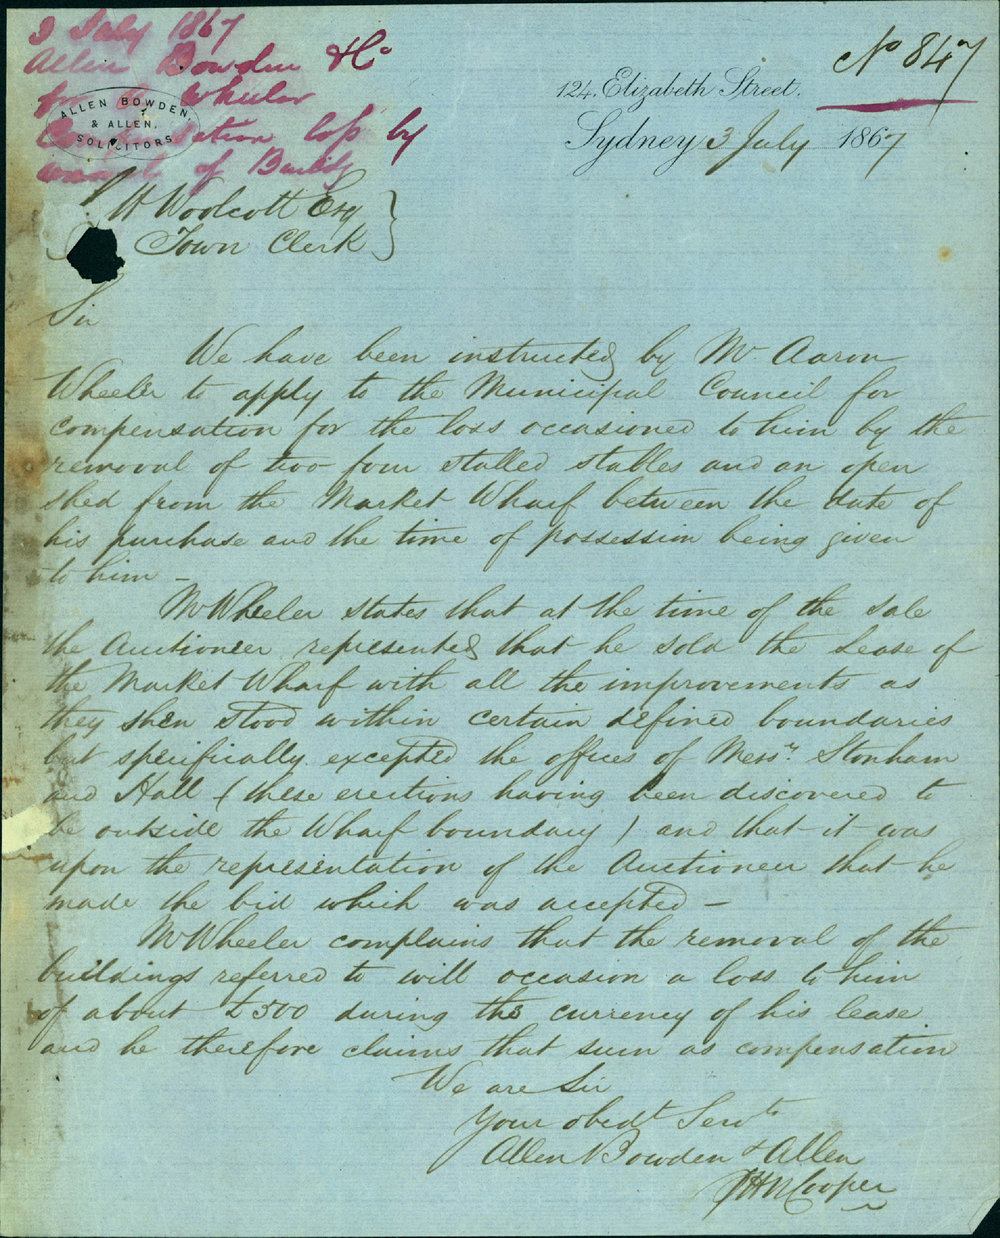 3 July 1867
Allen Bowden & Co
for A Wheeler
Compensation loss by
removal of Buildgs
ALLEN BOWDEN,
& ALLEN,
SOLICITORS
No 847
124, Elizabeth Street,
Sydney 3 July 1867
H Woolcott Esq
Town Clerk
Sir
We have been instructed by Mr Aaron
Wheeler to apply to the Municipal Council for
compensation for the loss occasioned to him by the
removal of two four stalled stables and an open
shed from the Market Wharf between the date of
his purchase and the time of possession being given
to him –
Mr Wheeler states that at the time of the sale
the Auctioneer represented that he sold the Lease of
the Market Wharf with all the improvements as
they then stood within certain defined boundaries
but specifically excepted the offices of Messrs. Stonham
and Hall (these erections having been discovered to
be outside the Wharf boundary) and that it was
upon the representation of the Auctioneer that he
made the bid which was accepted –
Mr Wheeler complains that the removal of the
buildings referred to will occasion a loss to him
of about £500 during the currency of his lease
and he therefore claims that sum as compensation
We are Sir
Your obedt Servts
Allen Bowden & Allen
Cooper